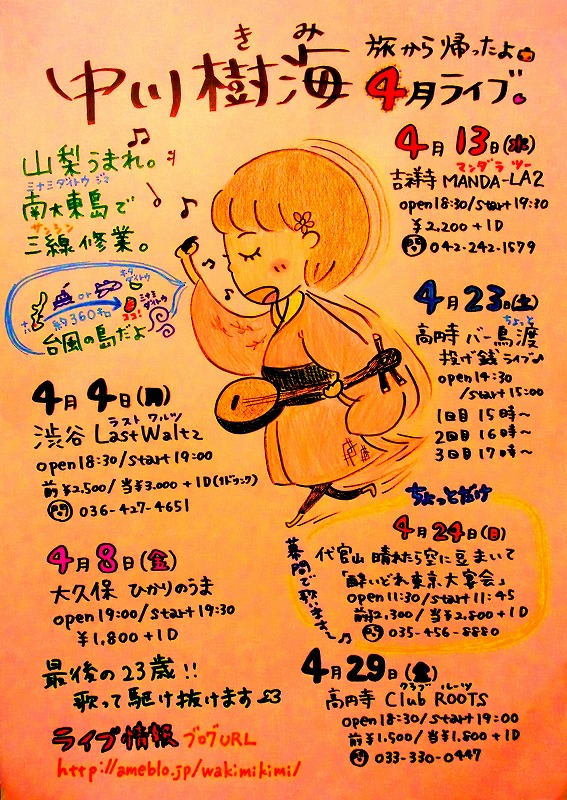 きみ
中川樹海
旅から帰ったよ
4月ライブ。
山梨うまれ。
ミナミダイトウジマ
南大東島で
サンシン
三線修業。
or
キタダイトウ
ミナミダイトウ
ココ!
約360キロ
台風の島だよ
4月4日(月)
ラストワルツ
渋谷 LastWaltz
open18:30/start19:00
前¥2,500/当¥3,000+1D(1ドリンク)
問 036-427-4651
4月8日(金)
大久保 ひかりのうま
open19:00/start19:30
¥1,800+1D
最後の23歳!!
歌って駆け抜けます
ライブ情報 ブログURL
http://ameblo.jp/wakimikimi/
4月13日(水)
マンダラ ツー
吉祥寺 MANDA-LA2
open18:30/start19:30
¥2,200+1D
問 042-242-1579
4月23日(土)
ちょっと
高円寺 バー鳥渡
投げ銭ライブ♪
open14:30
/start15:00
1回目15時〜
2回目16時〜
3回目17時〜
ちょっとだけ
4月24日(日)
幕間で歌います〜♪
代官山 晴れたら空に豆まいて
「酔いどれ東京大宴会」
open11:30/start11:45
前¥2,300/当¥2,800+1D
問 035-456-8880
4月29日(金)
クラブ ルーツ
高円寺 Club ROOTS
open18:30/start19:00
前¥1,500/当¥1,800+1D
問 033-330-0447